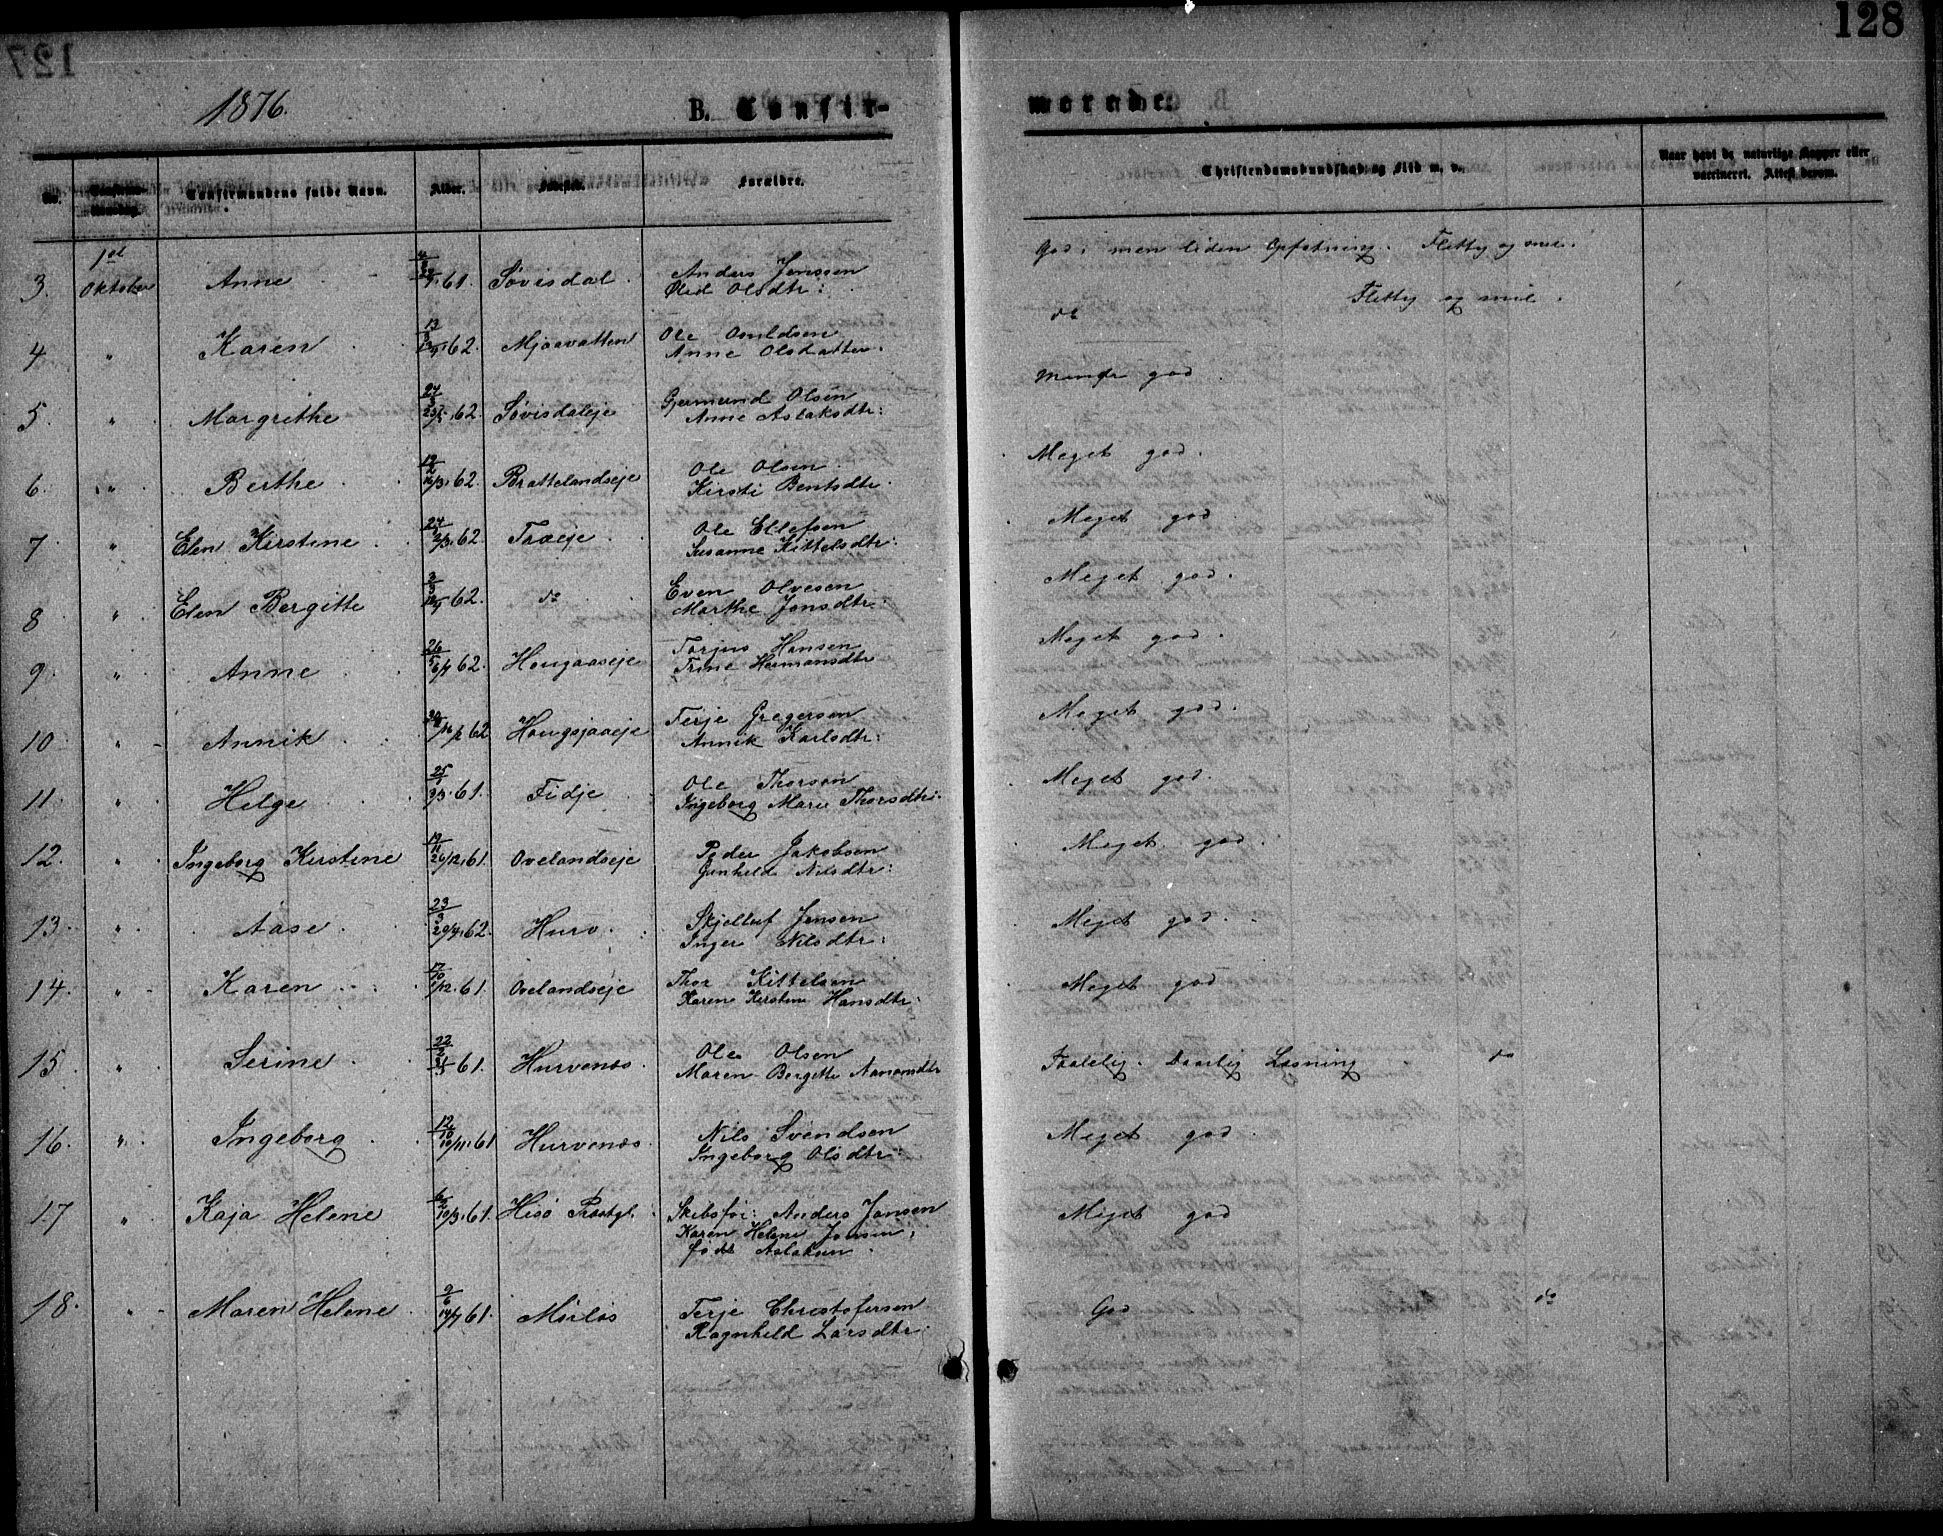 128
1876.
B. Confir-
merede.
No.
Confirmandens fulde Navn.
Alder.
Forældre.
Christendomskundskab og Flid m. v.
Naar havt de naturlige Kopper eller
vaccineret. Attest derom.
3. 1ste Oktober Anne 61. Søvisdal. Anders Jenssen
Olsdtr:
God; men liden Opfatning. Flittig og snil.
4 " Karen 62. Mjaavatten Ole
Anne Olsdatter.
do Flittig og snil.
5. " Margrethe 62. Søvisdaleje Gjermund Olsen
Anne Aslaksdtr:
Mindre god.
6. " Berthe 19/2 16/3. 62. Brattelandseje Ole Olsen
Kirsti Bentsdtr.
Meget god.
7 " Elen Kirstine 62. Træeje Ole Ellefsen
Susanne Kittelsdtr:
Meget god
8 " Elen Bergitte 62. do Even Olvesen
Marthe Jensdtr:
Meget god.
9. " Anne 62. Hougaaseje Torjus Hansen
Trine Hermansdtr
Meget god.
10 " Annik 62 Hougsjaaeje Terje Gregersen
Annik Karlsdtr:
Meget god.
11. " Helge 61. Fidje Ole Thorsen
Ingeborg Marie Thorsdtr:
Meget god.
12. " Ingeborg Kirstine 19/11 26/12. 61. Ovelandseje Peder Jakobsen
Gunhild Nilsdtr:
Meget god
13. " Aase 23/3 62. Hurv. Skjelluf Jensen
Inger Nilsdtr:
Meget god.
14. " Karen 17/10 1/12. 61. Ovelandseje Thor Kittelsen
Karen Kirstine Hansdtr.
Meget god
15. " Serine 61. Hurvenæs. Ole Olsen
Maren Bergitte Aanonsdtr
Taalelig. Daarlig Læsning do
16. " Ingeborg 12/10 10/11. 61 Hurvenæs. Nils Svendsen
Ingeborg Olsdtr:
Meget god
17 " Kaja Helene 10/3. 61. Hisø Præstgl. Skibsfør: Anders Jensen
Karen Helene Jensen,
født Aslaksen.
Meget god
18. " Maren Helene 9/6 14/7 61. Mørlos Terje Christofersen
Ragnhild Larsdtr.
God do